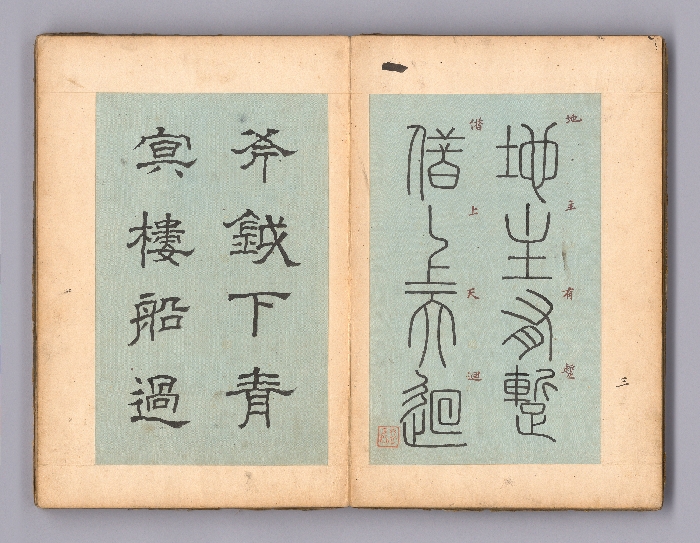 三
地主有蹔
地主有蹔
借上天廻
借上天廻
斧鉞下青
冥樓船過